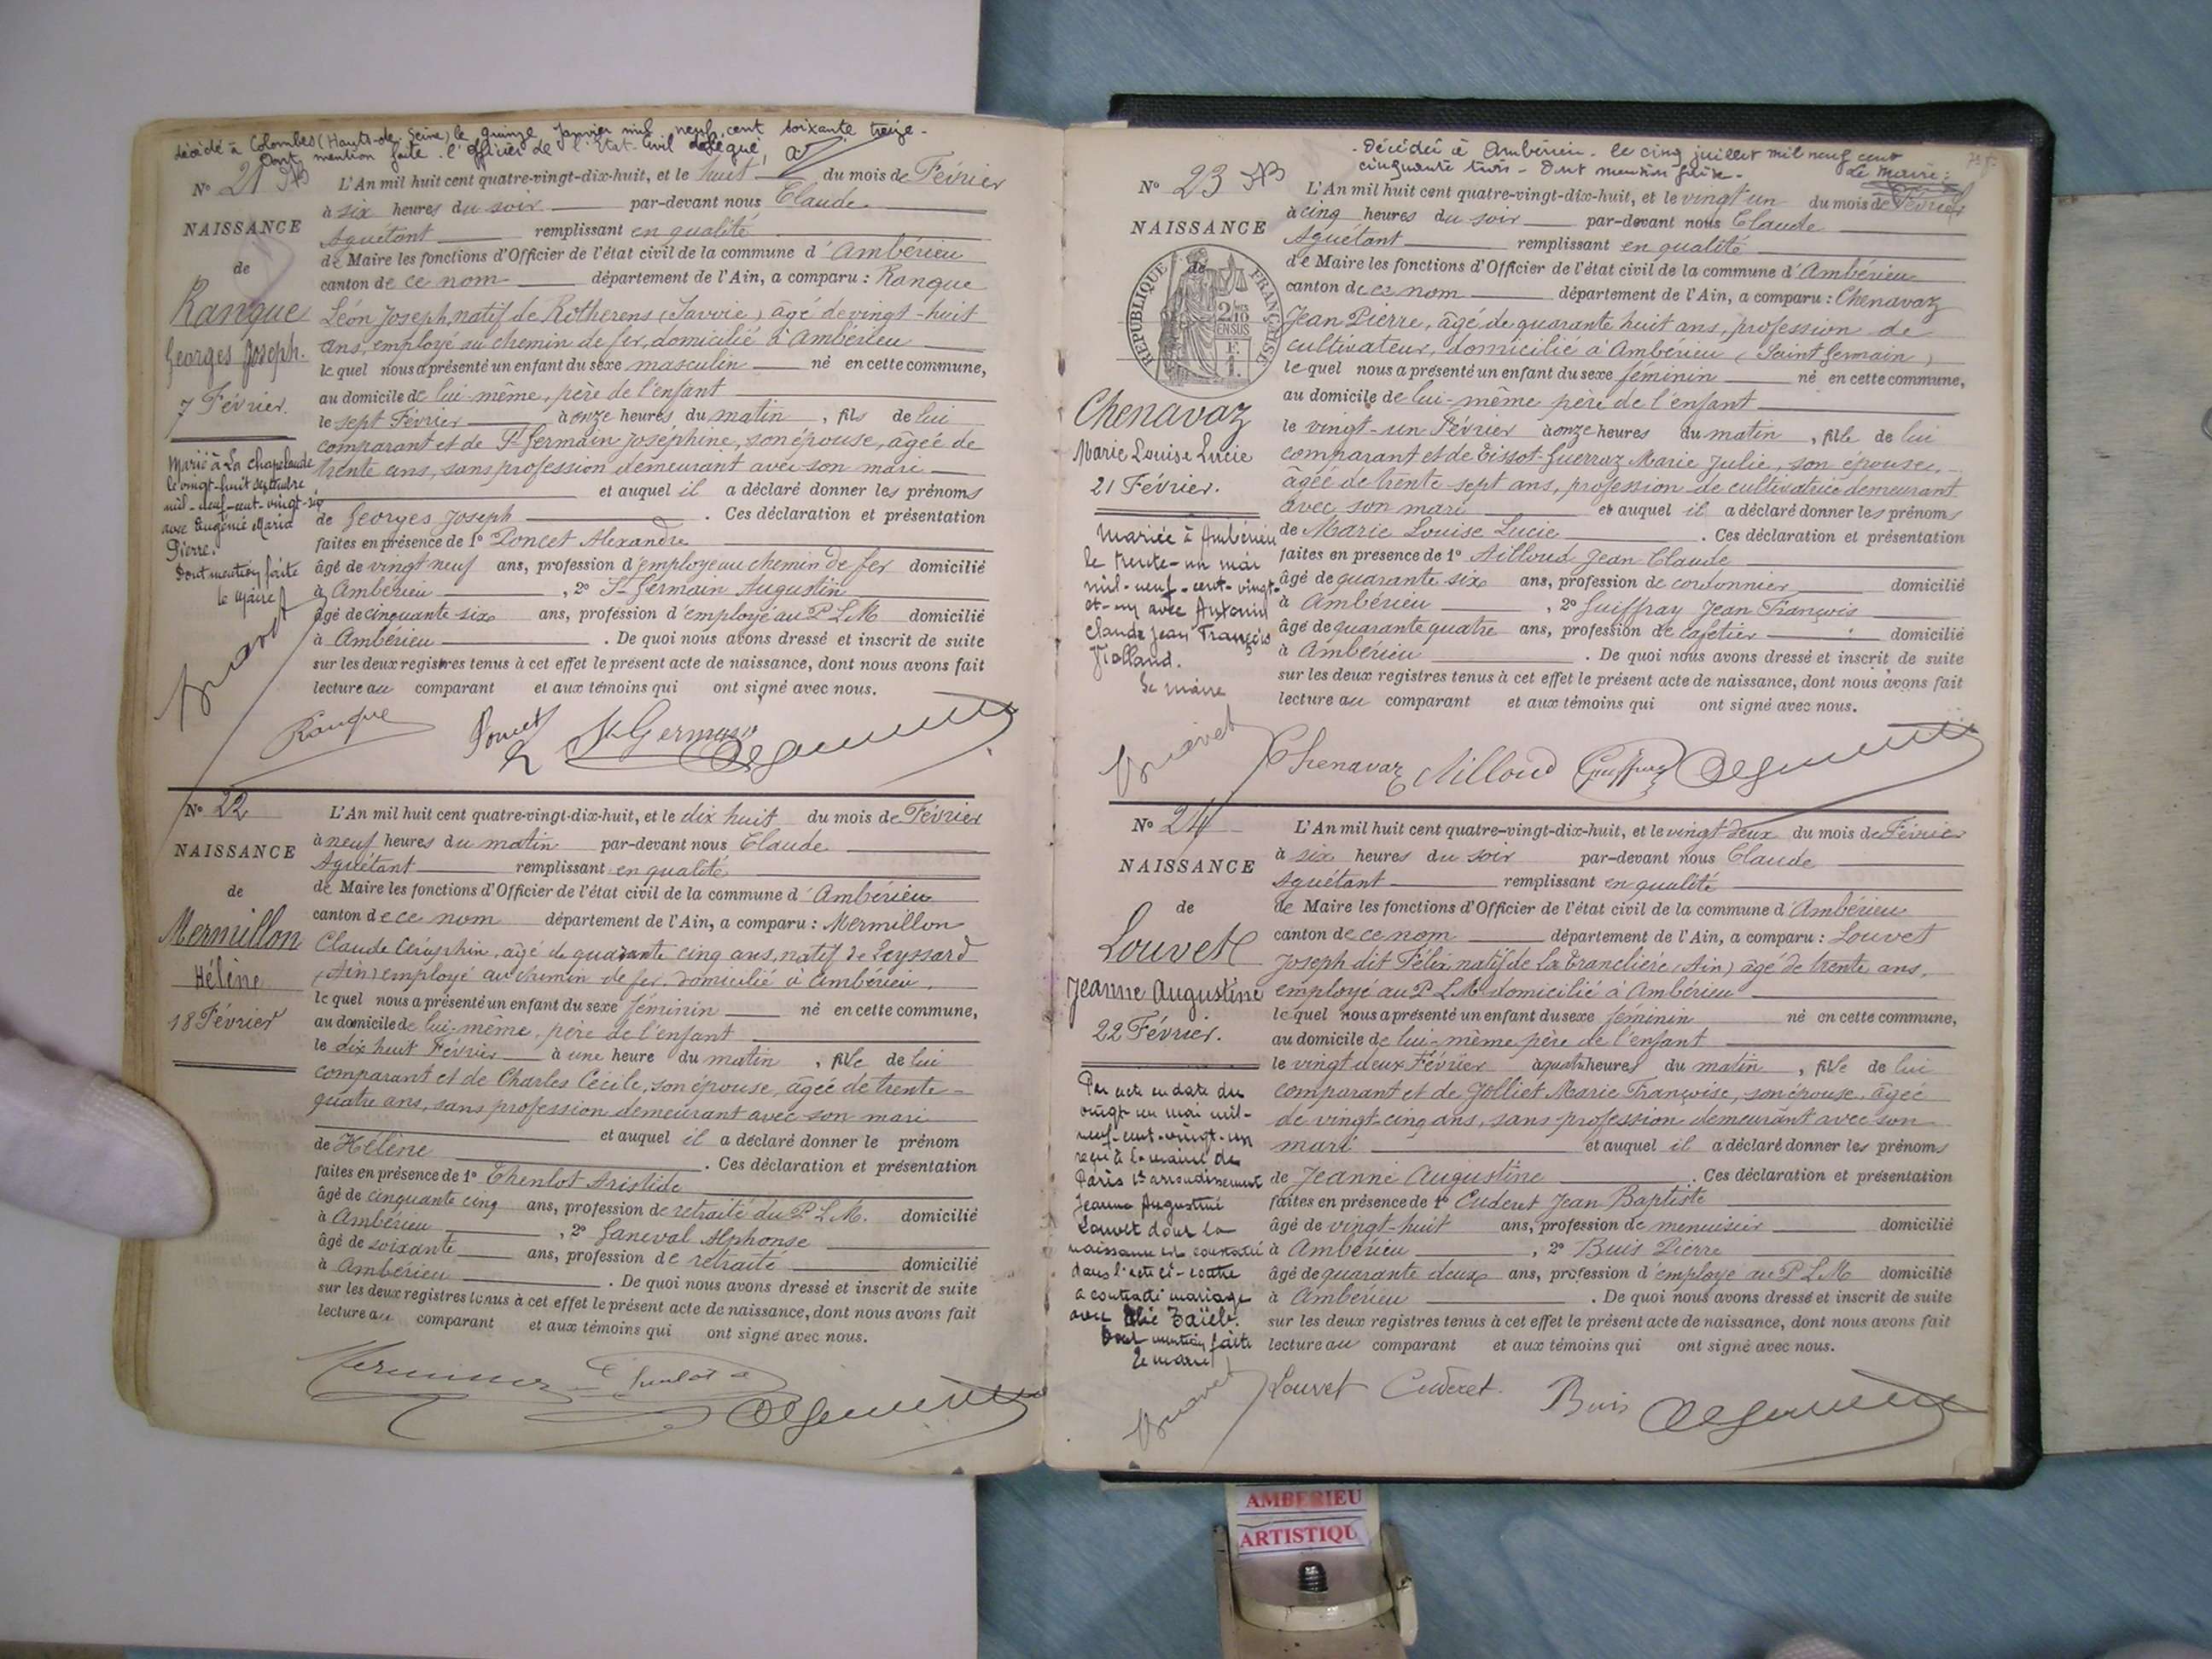 décédé à Colombes (Hauts-de-Seine) le quinze Janvier mil neuf cent soixante treize -
Dont mention faite. l'Officier de l'Etat-Civil délégué,
N° 21
NAISSANCE
de
Ranque
Georges Joseph.
7 Février.
Marié à La Chapelaude
le vingt-huit septembre
mil-neuf-cent-vingt-six
avec Eugénie Maria
Pierre.
Dont mention faite
le Maire
L'An mil huit cent quatre-vingt-dix-huit, et le huit du mois de Février
à six heures du soir par-devant nous Claude
Aguétant remplissant en qualité
de Maire les fonctions d'Officier de l'état civil de la commune d'Ambérieu
canton de ce nom département de l'Ain, a comparu : Ranque
Léon Joseph, natif de Rotherens (Savoie) âgé de vingt-huit
ans, employé au chemin de fer, domicilié à Ambérieu
lequel nous a présenté un enfant du sexe masculin né en cette commune,
au domicile de lui-même, père de l'enfant
le sept Février à onze heures du matin, fils de lui
comparant et de St Germain Joséphine, son épouse, âgée de
trente ans, sans profession demeurant avec son mari
et auquel il a déclaré donner les prénoms
de Georges Joseph. Ces déclaration et présentation
faites en présence de 1° Poncet Alexandre
âgé de vingt neuf ans, profession d'employé au chemin de fer domicilié
à Ambérieu, 2° St Germain Augustin
âgé de cinquante six ans, profession d'employé au P L M domicilié
à Ambérieu. De quoi nous avons dressé et inscrit de suite
sur les deux registres tenus à cet effet le présent acte de naissance, dont nous avons fait
lecture au comparant et aux témoins qui ont signé avec nous.
Ranque Poncet St Germain
N° 22
NAISSANCE
de
Mermillon
Hélène
18 Février
L'An mil huit cent quatre-vingt-dix-huit, et le dix huit du mois de Février
à neuf heures du matin par-devant nous Claude
Aguétant remplissant en qualité
de Maire les fonctions d'Officier de l'état civil de la commune d'Ambérieu
canton de ce nom département de l'Ain, a comparu : Mermillon
Claude, âgé de quarante cinq ans, natif de Leyssard
(Ain) employé au chemin de fer, domicilié à Ambérieu.
lequel nous a présenté un enfant du sexe féminin né en cette commune,
au domicile de lui-même, père de l'enfant
le dix huit Février à une heure du matin, fille de lui
comparant et de Charles Cécile, son épouse, âgée de trente-
quatre ans, sans profession demeurant avec son mari
et auquel il a déclaré donner le prénom
de Hélène. Ces déclaration et présentation
faites en présence de 1° Thenlot Aristide
âgé de cinquante cinq ans, profession de retraité du P L M. domicilié
à Ambérieu, 2° Janeval Alphonse
âgé de soixante ans, profession de retraité domicilié
à Ambérieu. De quoi nous avons dressé et inscrit de suite
sur les deux registres tenus à cet effet le présent acte de naissance, dont nous avons fait
lecture au comparant et aux témoins qui ont signé avec nous.
- Décédée à Ambérieu - le cinq juillet mil neuf cent
cinquante trois - Dont mention faite -
Le Maire:
N° 23
NAISSANCE
de
RÉPUBLIQUE FRANÇAISE
Chenavaz
Marie Louise Lucie
21 Février.
Mariée à Ambérieu
le trente-un mai
mil-neuf-cent-vingt-
et-un avec Antonin
Claude Jean François
Violland.
Le Maire
L'An mil huit cent quatre-vingt-dix-huit, et le vingt un du mois de Février
à cinq heures du soir par-devant nous Claude
Aguétant remplissant en qualité
de Maire les fonctions d'Officier de l'état civil de la commune d'Ambérieu
canton de ce nom département de l'Ain, a comparu : Chenavaz
Jean Pierre, âgé de quarante huit ans, profession de
cultivateur, domicilié à Ambérieu (Saint Germain)
lequel nous a présenté un enfant du sexe féminin né en cette commune,
au domicile de lui-même père de l'enfant
le vingt-un Février à onze heures du matin, fille de lui
comparant et de Tissot-Guerraz Marie Julie, son épouse,
âgée de trente-sept ans, profession de cultivatrice demeurant
avec son mari et auquel il a déclaré donner les prénoms
de Marie Louise Lucie. Ces déclaration et présentation
faites en présence de 1° Ailloud Jean Claude
âgé de quarante six ans, profession de cordonnier domicilié
à Ambérieu, 2° Guiffray Jean François
âgé de quarante quatre ans, profession de cafetier domicilié
à Ambérieu. De quoi nous avons dressé et inscrit de suite
sur les deux registres tenus à cet effet le présent acte de naissance, dont nous avons fait
lecture au comparant et aux témoins qui ont signé avec nous.
Chenavaz Ailloud Guiffray
N° 24
NAISSANCE
de
Louvet
Jeanne Augustine
22 Février.
Par acte en date du
vingt un mai mil-
neuf-cent-vingt-un
reçu à la mairie de
Paris arrondissement
Jeanne Augustine
Louvet dont la
naissance est constatée
dans l'acte ci-contre
a contracté mariage
avec Elie Zaïeb.
Dont mention faite
Le Maire
L'An mil huit cent quatre-vingt-dix-huit, et le vingt deux du mois de Février
à six heures du soir par-devant nous Claude
Aguétant remplissant en qualité
de Maire les fonctions d'Officier de l'état civil de la commune d'Ambérieu
canton de ce nom département de l'Ain, a comparu : Louvet
Joseph dit Félix natif de La Tranclière (Ain) âgé de trente ans,
employé au P L M domicilié à Ambérieu
lequel nous a présenté un enfant du sexe féminin né en cette commune,
au domicile de lui-même père de l'enfant
le vingt deux Février à quatre heures du matin, fille de lui
comparant et de Jolliet Marie Françoise, son épouse, âgée
de vingt-cinq ans, sans profession demeurant avec son
mari et auquel il a déclaré donner les prénoms
de Jeanne Augustine. Ces déclaration et présentation
faites en présence de 1° Cuderet Jean Baptiste
âgé de vingt-huit ans, profession de menuisier domicilié
à Ambérieu, 2° Buis Pierre
âgé de quarante deux ans, profession d'employé au P L M domicilié
à Ambérieu. De quoi nous avons dressé et inscrit de suite
sur les deux registres tenus à cet effet le présent acte de naissance, dont nous avons fait
lecture au comparant et aux témoins qui ont signé avec nous.
Louvet Cuderet. Buis
AMBERIEU
ARTISTIQU